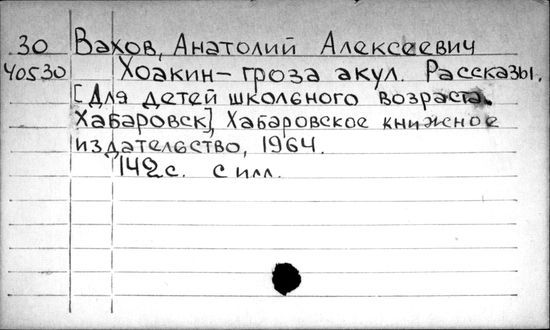 30 Вахов, Анатолий Алексеевич
40530 Хоакин – гроза акул. Рассказы.
[Для детей школьного возраста.
Хабаровск], Хабаровское книжное
издательство, 1964.
142 с. с илл.